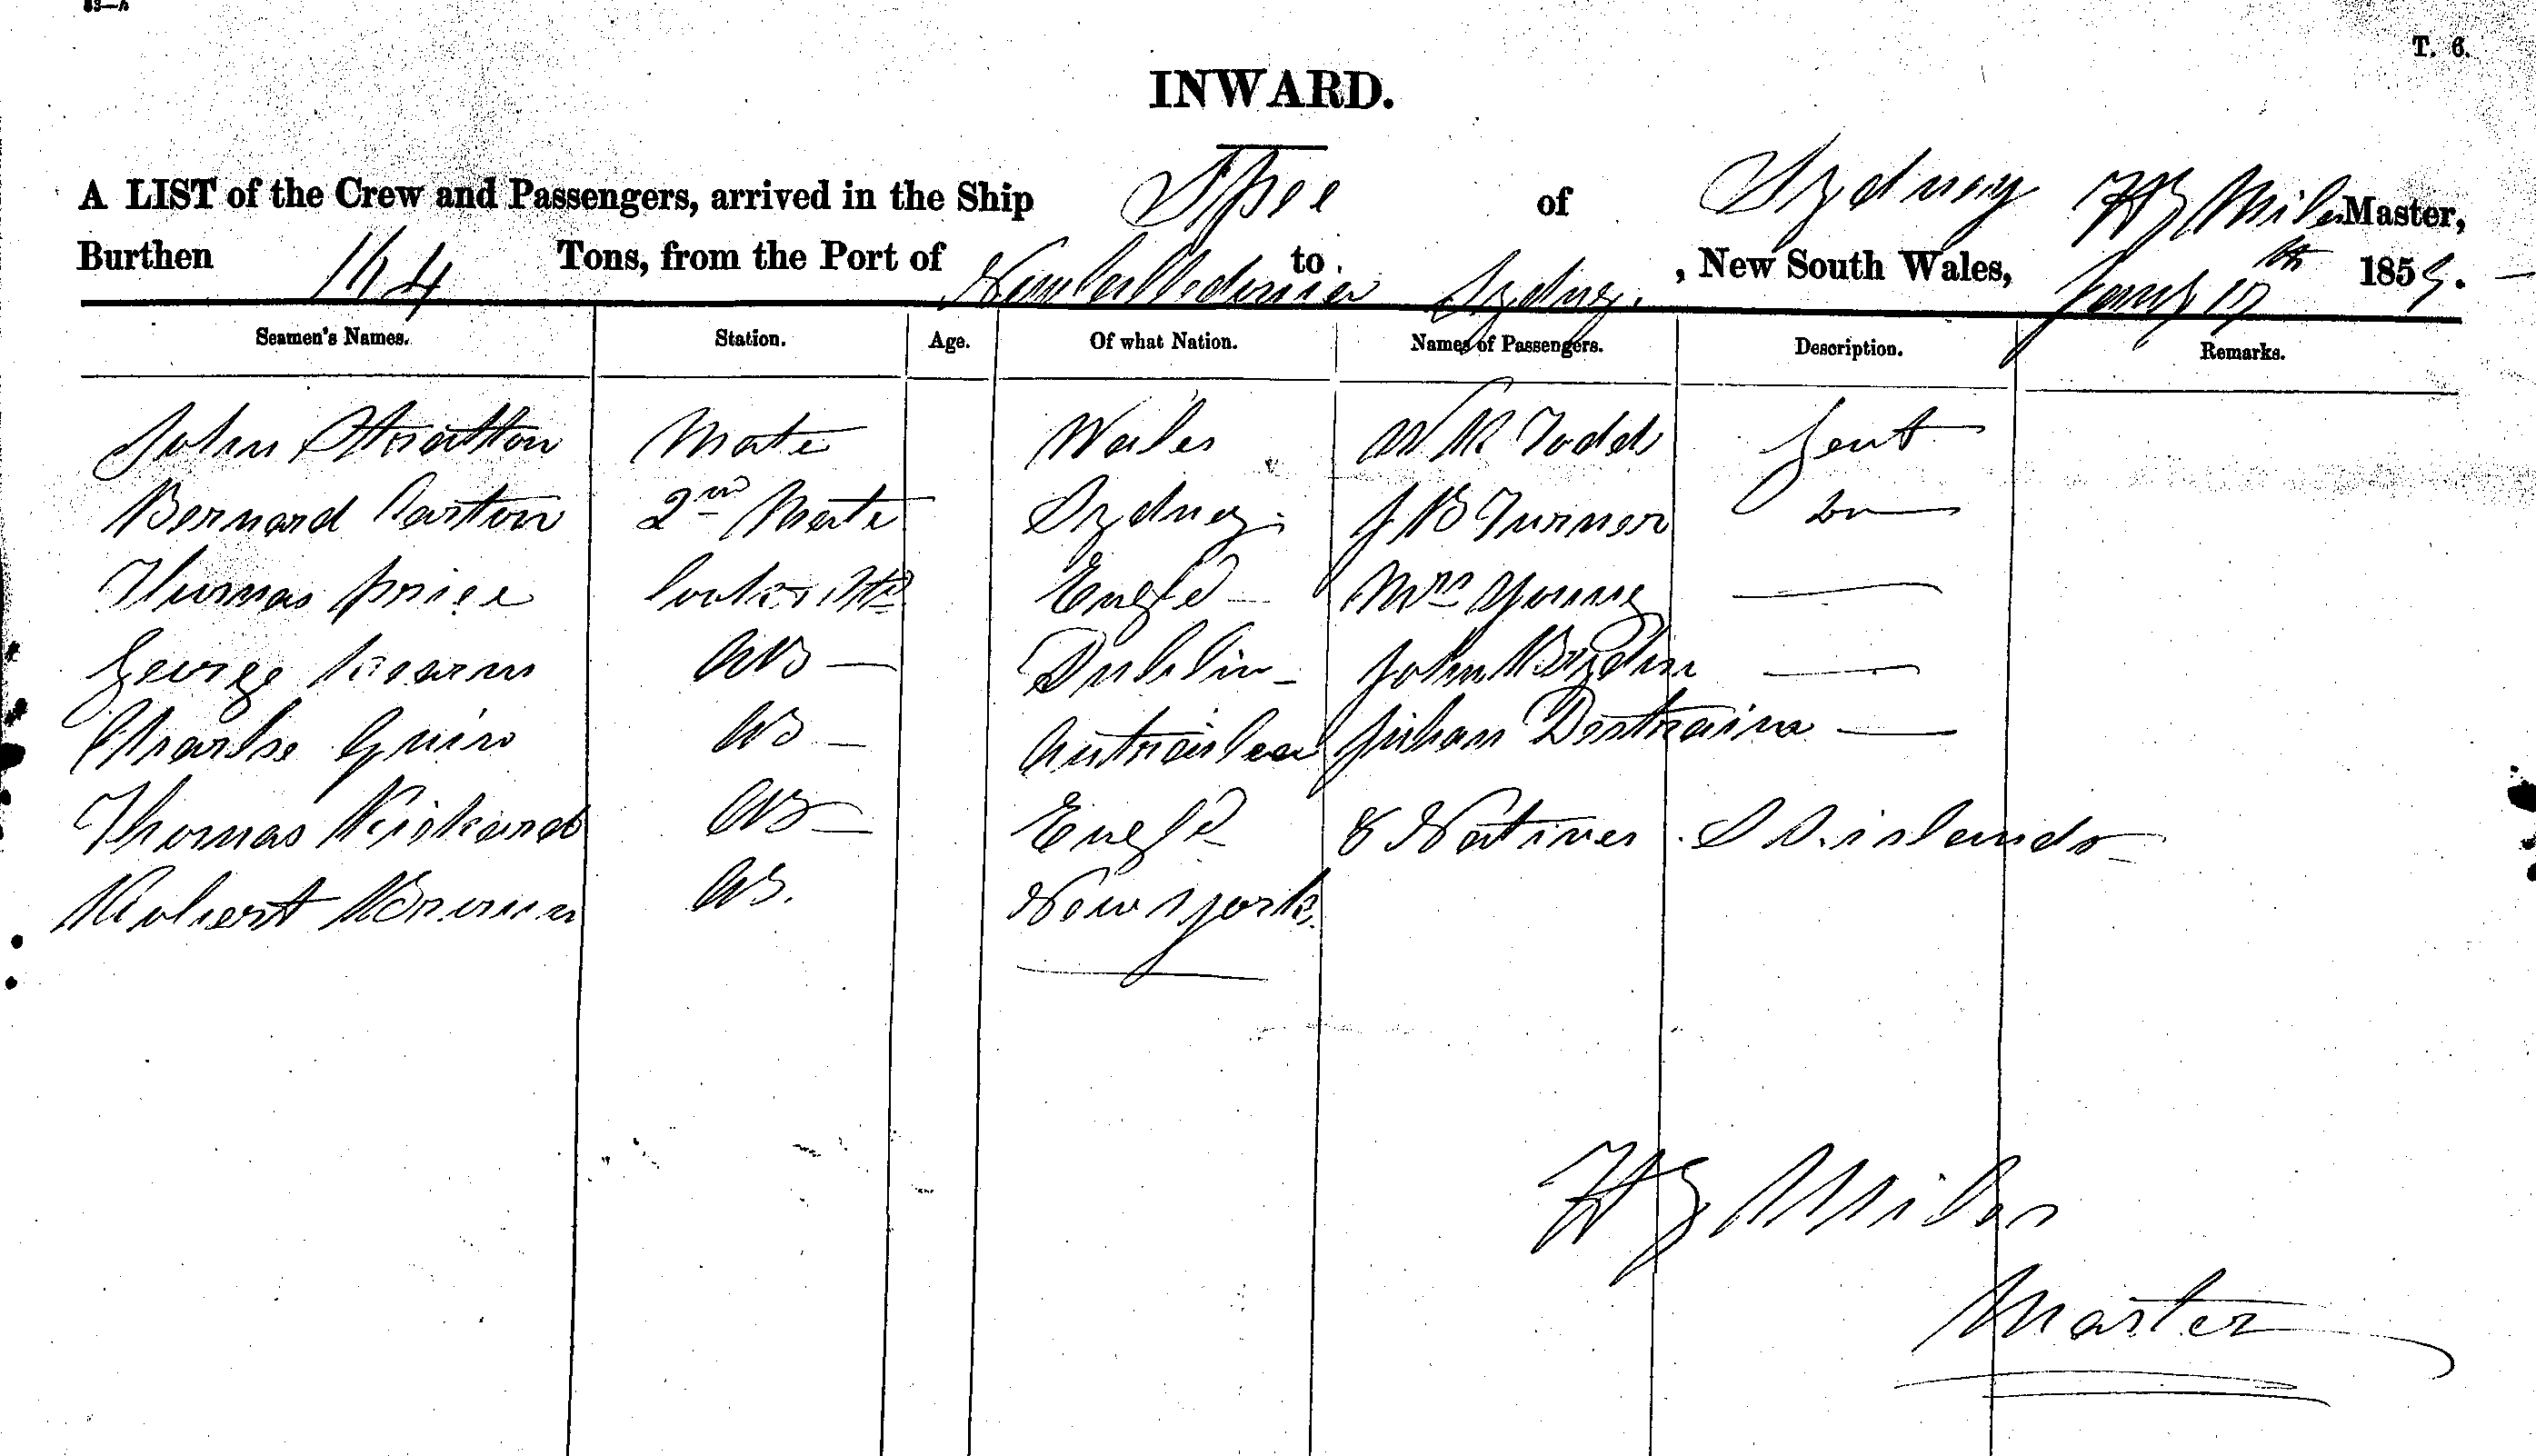 T. 6.
INWARD.
A LIST of the Crew and Passengers, arrived in the Ship Spee of Sydney H J Miles Master,
Burthen 164 Tons, from the Port of New Caledonia to Sydney, New South Wales, Jany 17th 1859.
Seamen's Names. Station. Age. Of what Nation. Names of Passengers. Description. Remarks.
John Stratton Mate Wales W R Todd Gent
Bernard Carton 2nd Mate Sydney J B Turner Do
Thomas price Cook & Std Engld Mrs Young
George Kearns AB Dublin John
Guin AB Destrain
Thomas AB Engld 8 Natives S S. islands
Robert Brown AB. New york.
H J Miles
Master